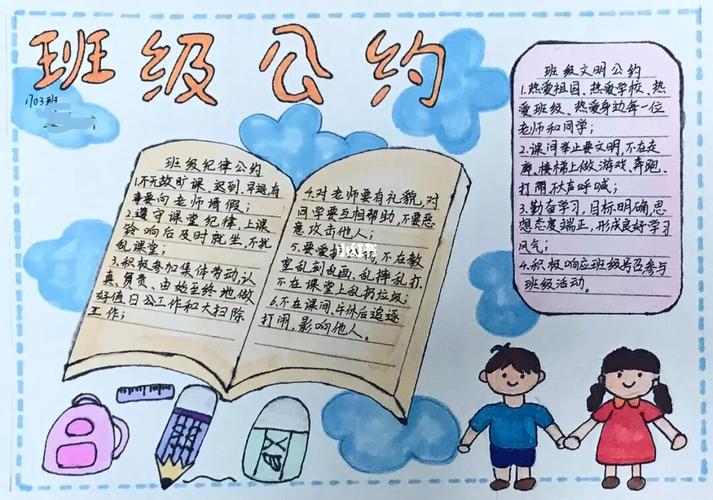 班级公约
1703班
班级纪律公约
1.不无故旷课、迟到、早退,有
事要向老师请假;
2.遵守课堂纪律,上课
铃响后及时就坐,不扰
乱课堂;
3.积极参加集体劳动,认
真、负责、由始至终地做
好值日公工作和大扫除
工作;
4.对老师要有礼貌,对
同学要互相帮助,不要恶
意攻击他人;
5.要爱 不在教
小红书
室乱刻乱画,乱摔乱打
不在课堂上乱扔垃圾;
6.不在课间、午休后追逐
打闹,影响他人。
班级文明公约
1.热爱祖国、热爱学校、热
爱班级、热爱身边每一位
老师和同学;
2.课间举止要文明,不在走
廊、楼梯上做游戏、奔跑、
打闹,不大声呼喊;
3.勤奋学习,目标明确,思
想态度端正,形成良好学习
风气;
4.积极响应班级号召参与
班级活动。